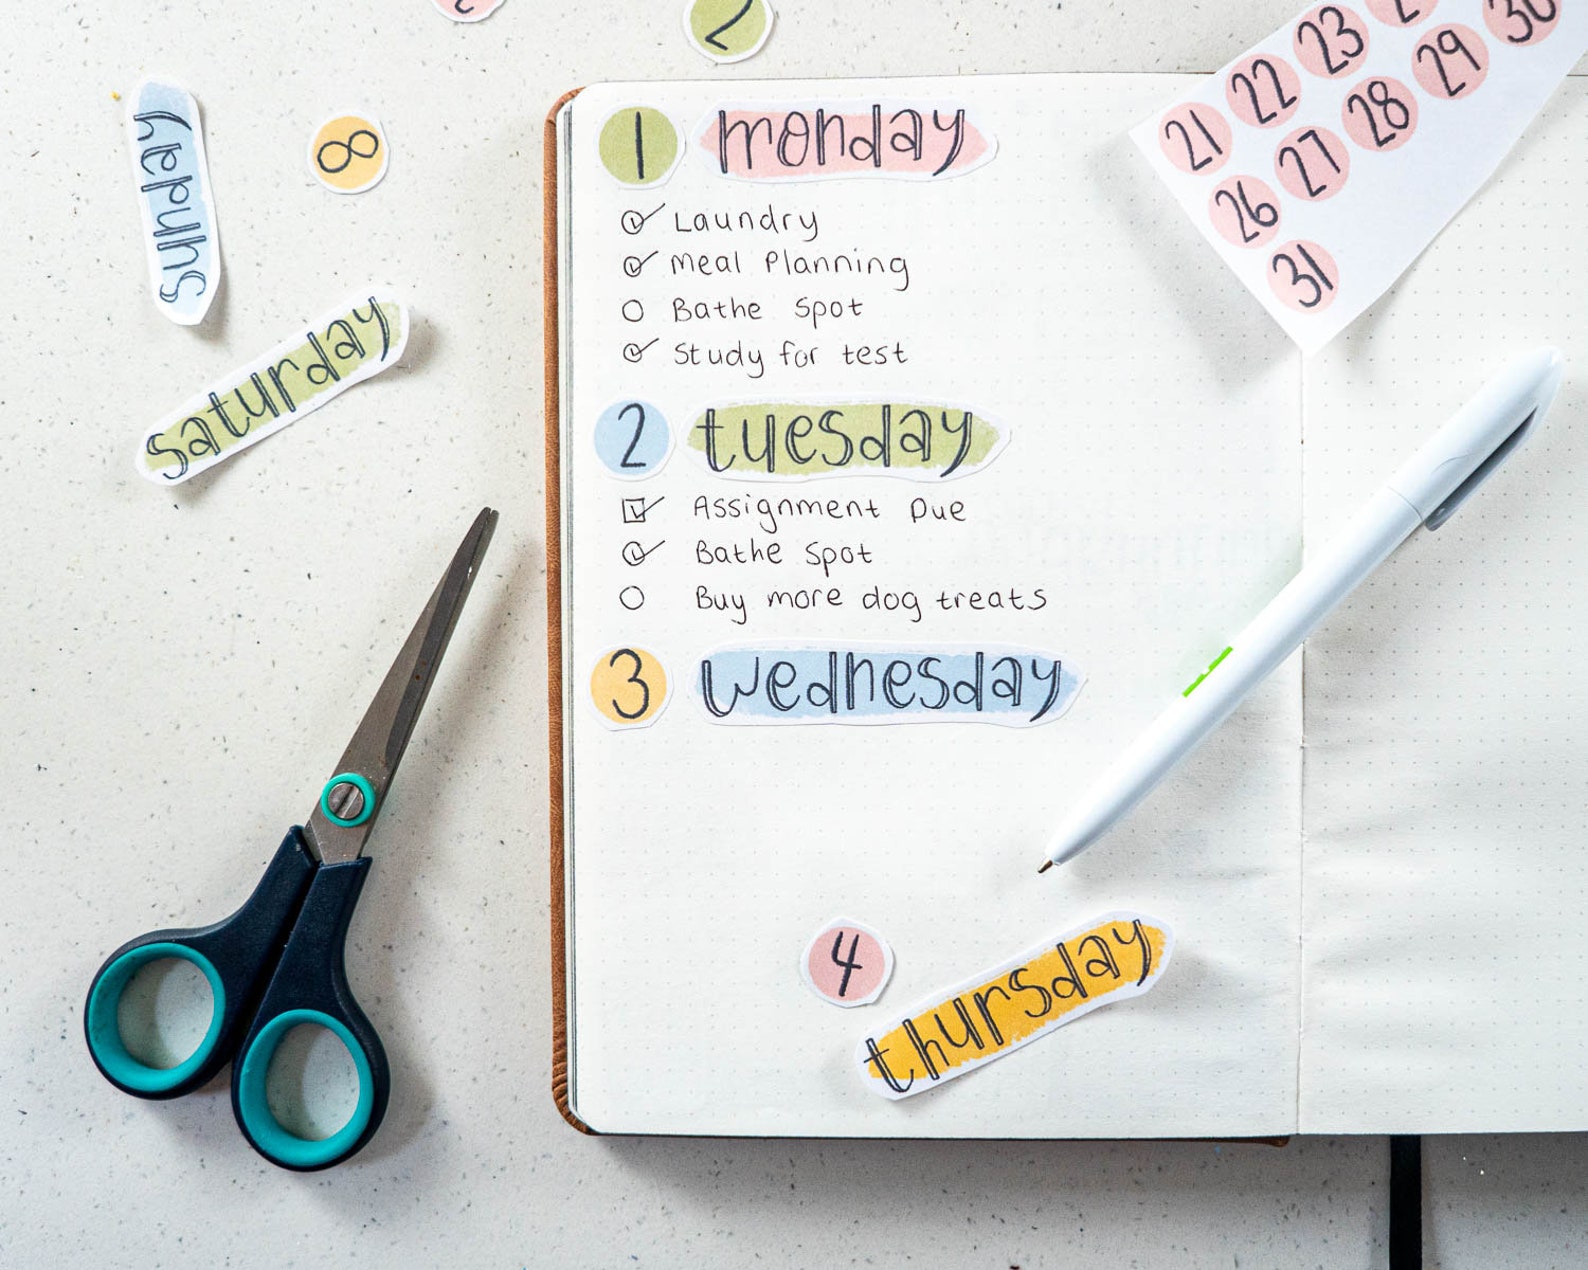 2
1 monday
Laundry
Meal Planning
Bathe Spot
Study for test
2 tuesday
Assignment Due
Bathe Spot
Buy more dog treats
3 wednesday
4 thursday
sunday
8
saturday
21 22 23
26 27 28 29 30
31